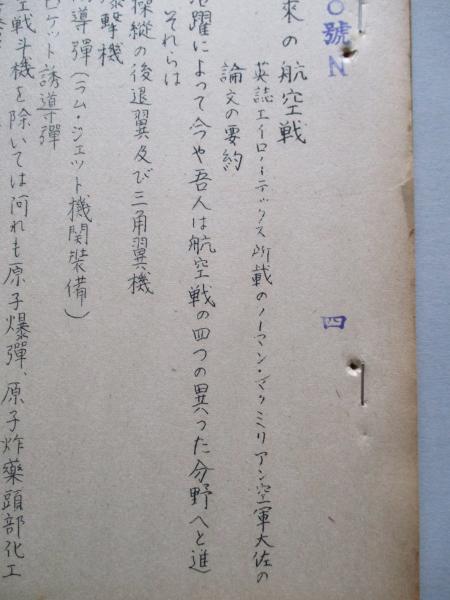 〇號N
四
来の航空戦
英誌エイロノーテックス所載のノーマン・マクミリアン空軍大佐の
論文の要約
躍によって今や吾人は航空戦の四つの異つた分野へと進
それらは
操縦の後退翼及び三角翼機
爆撃機
導彈(ラム・ジェット機関装備)
ロケット誘導彈
空戦斗機を除いては何れも原子爆彈、原子炸藥頭部化工